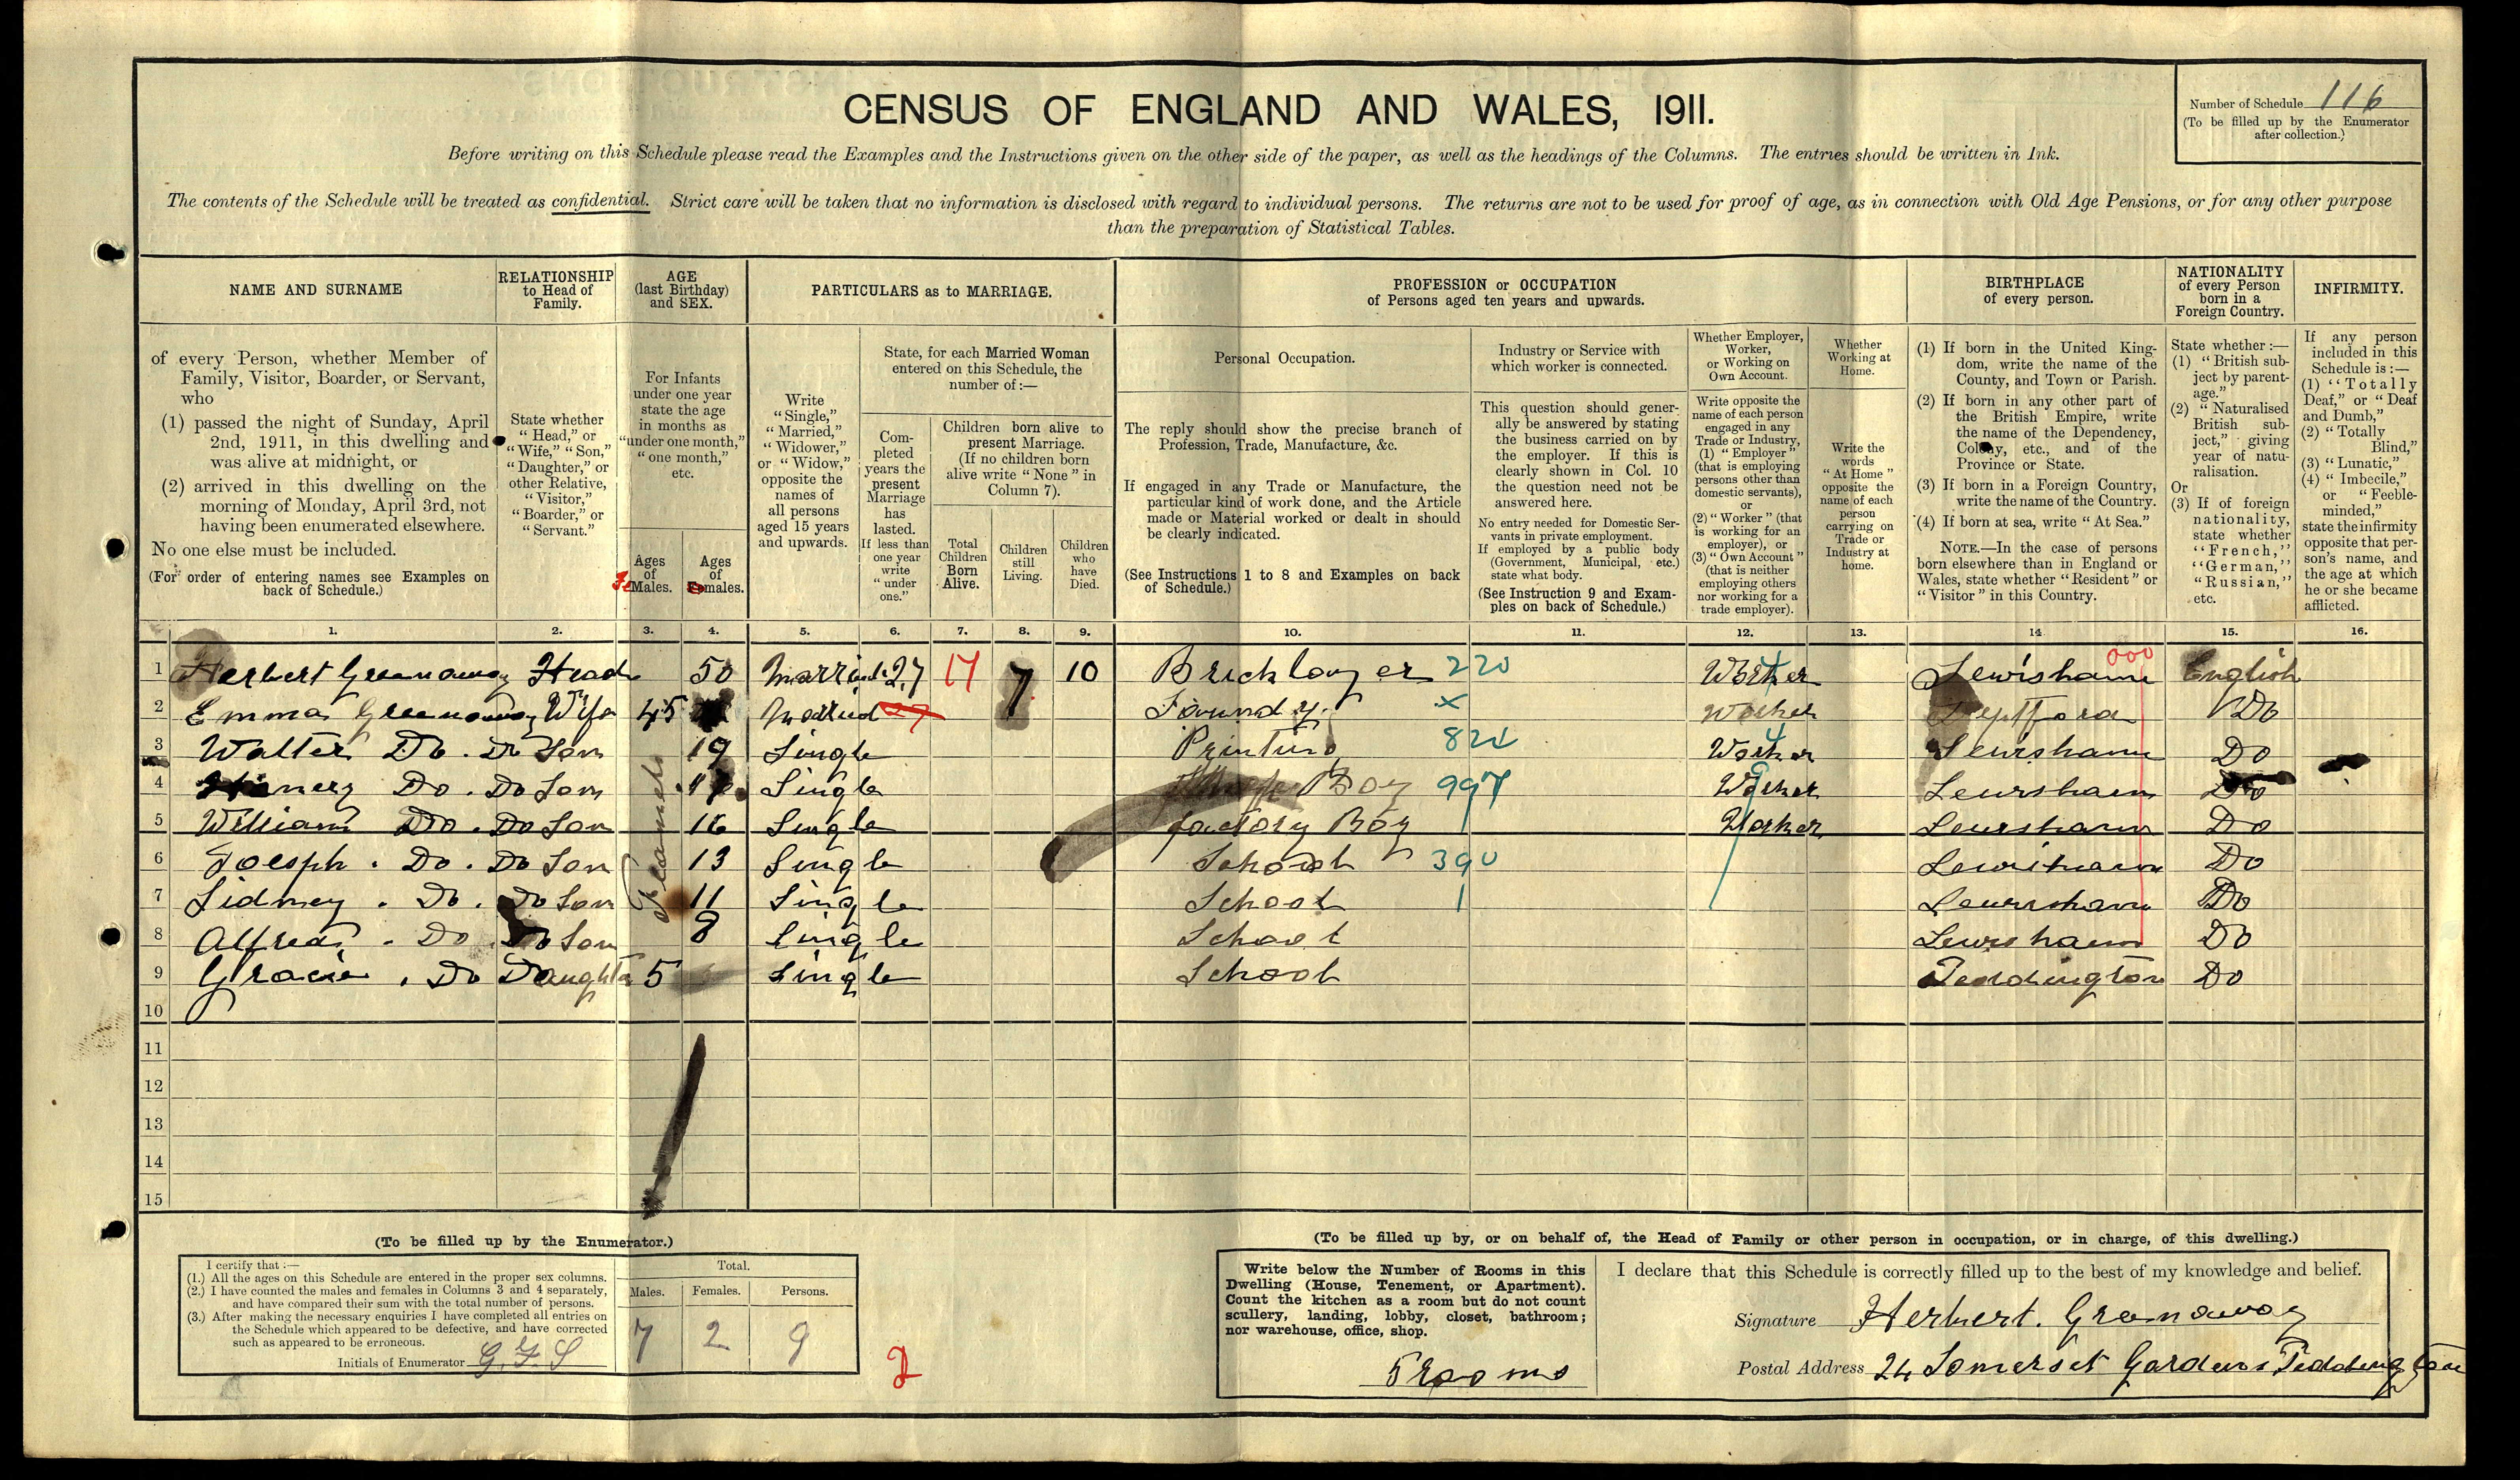 CENSUS OF ENGLAND AND WALES, 1911.
Number of Schedule 116
(To be filled up by the Enumerator
after collection.)
Before writing on this Schedule please read the Examples and the Instructions given on the other side of the paper, as well as the headings of the Columns. The entries should be written in Ink.
The contents of the Schedule will be treated as confidential. Strict care will be taken that no information is disclosed with regard to individual persons. The returns are not to be used for proof of age, as in connection with Old Age Pensions, or for any other purpose
than the preparation of Statistical Tables.
NAME AND SURNAME
of every Person, whether Member of
Family, Visitor, Boarder, or Servant,
who
(1) passed the night of Sunday, April
2nd, 1911, in this dwelling and
was alive at midnight, or
(2) arrived in this dwelling on the
morning of Monday, April 3rd, not
having been enumerated elsewhere.
No one else must be included.
(For order of entering names see Examples on
back of Schedule.)
RELATIONSHIP
to Head of
Family.
State whether
"Head," or
"Wife," "Son,"
"Daughter," or
other Relative,
"Visitor,"
"Boarder," or
"Servant."
AGE
(last Birthday)
and SEX.
For Infants
under one year
state the age
in months as
"under one month,"
"one month,"
etc.
Ages
of
Males.
Ages
of
Females.
PARTICULARS as to MARRIAGE.
Write
"Single,"
"Married,"
"Widower,"
or "Widow,"
opposite the
names of
all persons
aged 15 years
and upwards.
State, for each Married Woman
entered on this Schedule, the
number of:—
Com-
pleted
years the
present
Marriage
has
lasted.
If less than
one year
write
"under
one."
Children born alive to
present Marriage.
(If no children born
alive write "None" in
Column 7).
Total
Children
Born
Alive.
Children
still
Living.
Children
who
have
Died.
PROFESSION or OCCUPATION
of Persons aged ten years and upwards.
Personal Occupation.
The reply should show the precise branch of
Profession, Trade, Manufacture, &c.
If engaged in any Trade or Manufacture, the
particular kind of work done, and the Article
made or Material worked or dealt in should
be clearly indicated.
(See Instructions 1 to 8 and Examples on back
of Schedule.)
Industry or Service with
which worker is connected.
This question should gener-
ally be answered by stating
the business carried on by
the employer. If this is
clearly shown in Col. 10
the question need not be
answered here.
No entry needed for Domestic Ser-
vants in private employment.
If employed by a public body
(Government, Municipal, etc.)
state what body.
(See Instruction 9 and Exam-
ples on back of Schedule.)
Whether Employer,
Worker,
or Working on
Own Account.
Write opposite the
name of each person
engaged in any
Trade or Industry,
(1) "Employer"
(that is employing
persons other than
domestic servants),
or
(2) "Worker" (that
is working for an
employer), or
(3) "Own Account"
(that is neither
employing others
nor working for a
trade employer).
Whether
Working at
Home.
Write the
words
"At Home"
opposite the
name of each
person
carrying on
Trade or
Industry at
home.
BIRTHPLACE
of every person.
(1) If born in the United King-
dom, write the name of the
County, and Town or Parish.
(2) If born in any other part of
the British Empire, write
the name of the Dependency,
Colony, etc., and of the
Province or State.
(3) If born in a Foreign Country,
write the name of the Country.
(4) If born at sea, write "At Sea."
NOTE.—In the case of persons
born elsewhere than in England or
Wales, state whether "Resident" or
"Visitor" in this Country.
NATIONALITY
of every Person
born in a
Foreign Country.
State whether:—
(1) "British sub-
ject by parent-
age."
(2) "Naturalised
British sub-
ject," giving
year of natu-
ralisation.
Or
(3) If of foreign
nationality,
state whether
"French,"
"German,"
"Russian,"
etc.
INFIRMITY.
If any person
included in this
Schedule is:—
(1) "Totally
Deaf," or "Deaf
and Dumb,"
(2) "Totally
Blind,"
(3) "Lunatic,"
(4) "Imbecile,"
or "Feeble-
minded,"
state the infirmity
opposite that per-
son's name, and
the age at which
he or she became
afflicted.
1. 2. 3. 4. 5. 6. 7. 8. 9. 10. 11. 12. 13. 14 15. 16.
1 Herbert Greenaway Head 50 Married 27 17 7 10 Bricklayer 220 Worker Lewisham 000 English
2 Emma Greenaway Wife 45 Married 27 Laundry x Worker Deptford Do
3 Walter Do. Do Son 19 Single Printing Worker Lewisham Do
4 Do. Do Son Single Boy 997 Worker Lewisham Do
5 William Do. Do Son 16 Single factory Boy Worker Lewisham Do
6 Joesph. Do. Do Son 13 Single School 390 Lewisham Do
7 Sidney. Do. Do Son 11 Single School 1 Lewisham Do
8 Alfred. Do. Do Son 8 Single School Lewisham Do
9 Gracie. Do Daughter 5 Single School Teddington Do
10
11
12
13
14
15
(To be filled up by the Enumerator.)
I certify that:—
(1.) All the ages on this Schedule are entered in the proper sex columns.
(2.) I have counted the males and females in Columns 3 and 4 separately,
and have compared their sum with the total number of persons.
(3.) After making the necessary enquiries I have completed all entries on
the Schedule which appeared to be defective, and have corrected
such as appeared to be erroneous.
Initials of Enumerator G.F.S
Total.
Males. Females. Persons.
7 2 9
2
(To be filled up by, or on behalf of, the Head of Family or other person in occupation, or in charge, of this dwelling.)
Write below the Number of Rooms in this
Dwelling (House, Tenement, or Apartment).
Count the kitchen as a room but do not count
scullery, landing, lobby, closet, bathroom;
nor warehouse, office, shop.
5 Rooms
I declare that this Schedule is correctly filled up to the best of my knowledge and belief.
Signature Herbert. Greenaway
Postal Address 24 Somerset Gardens Teddington